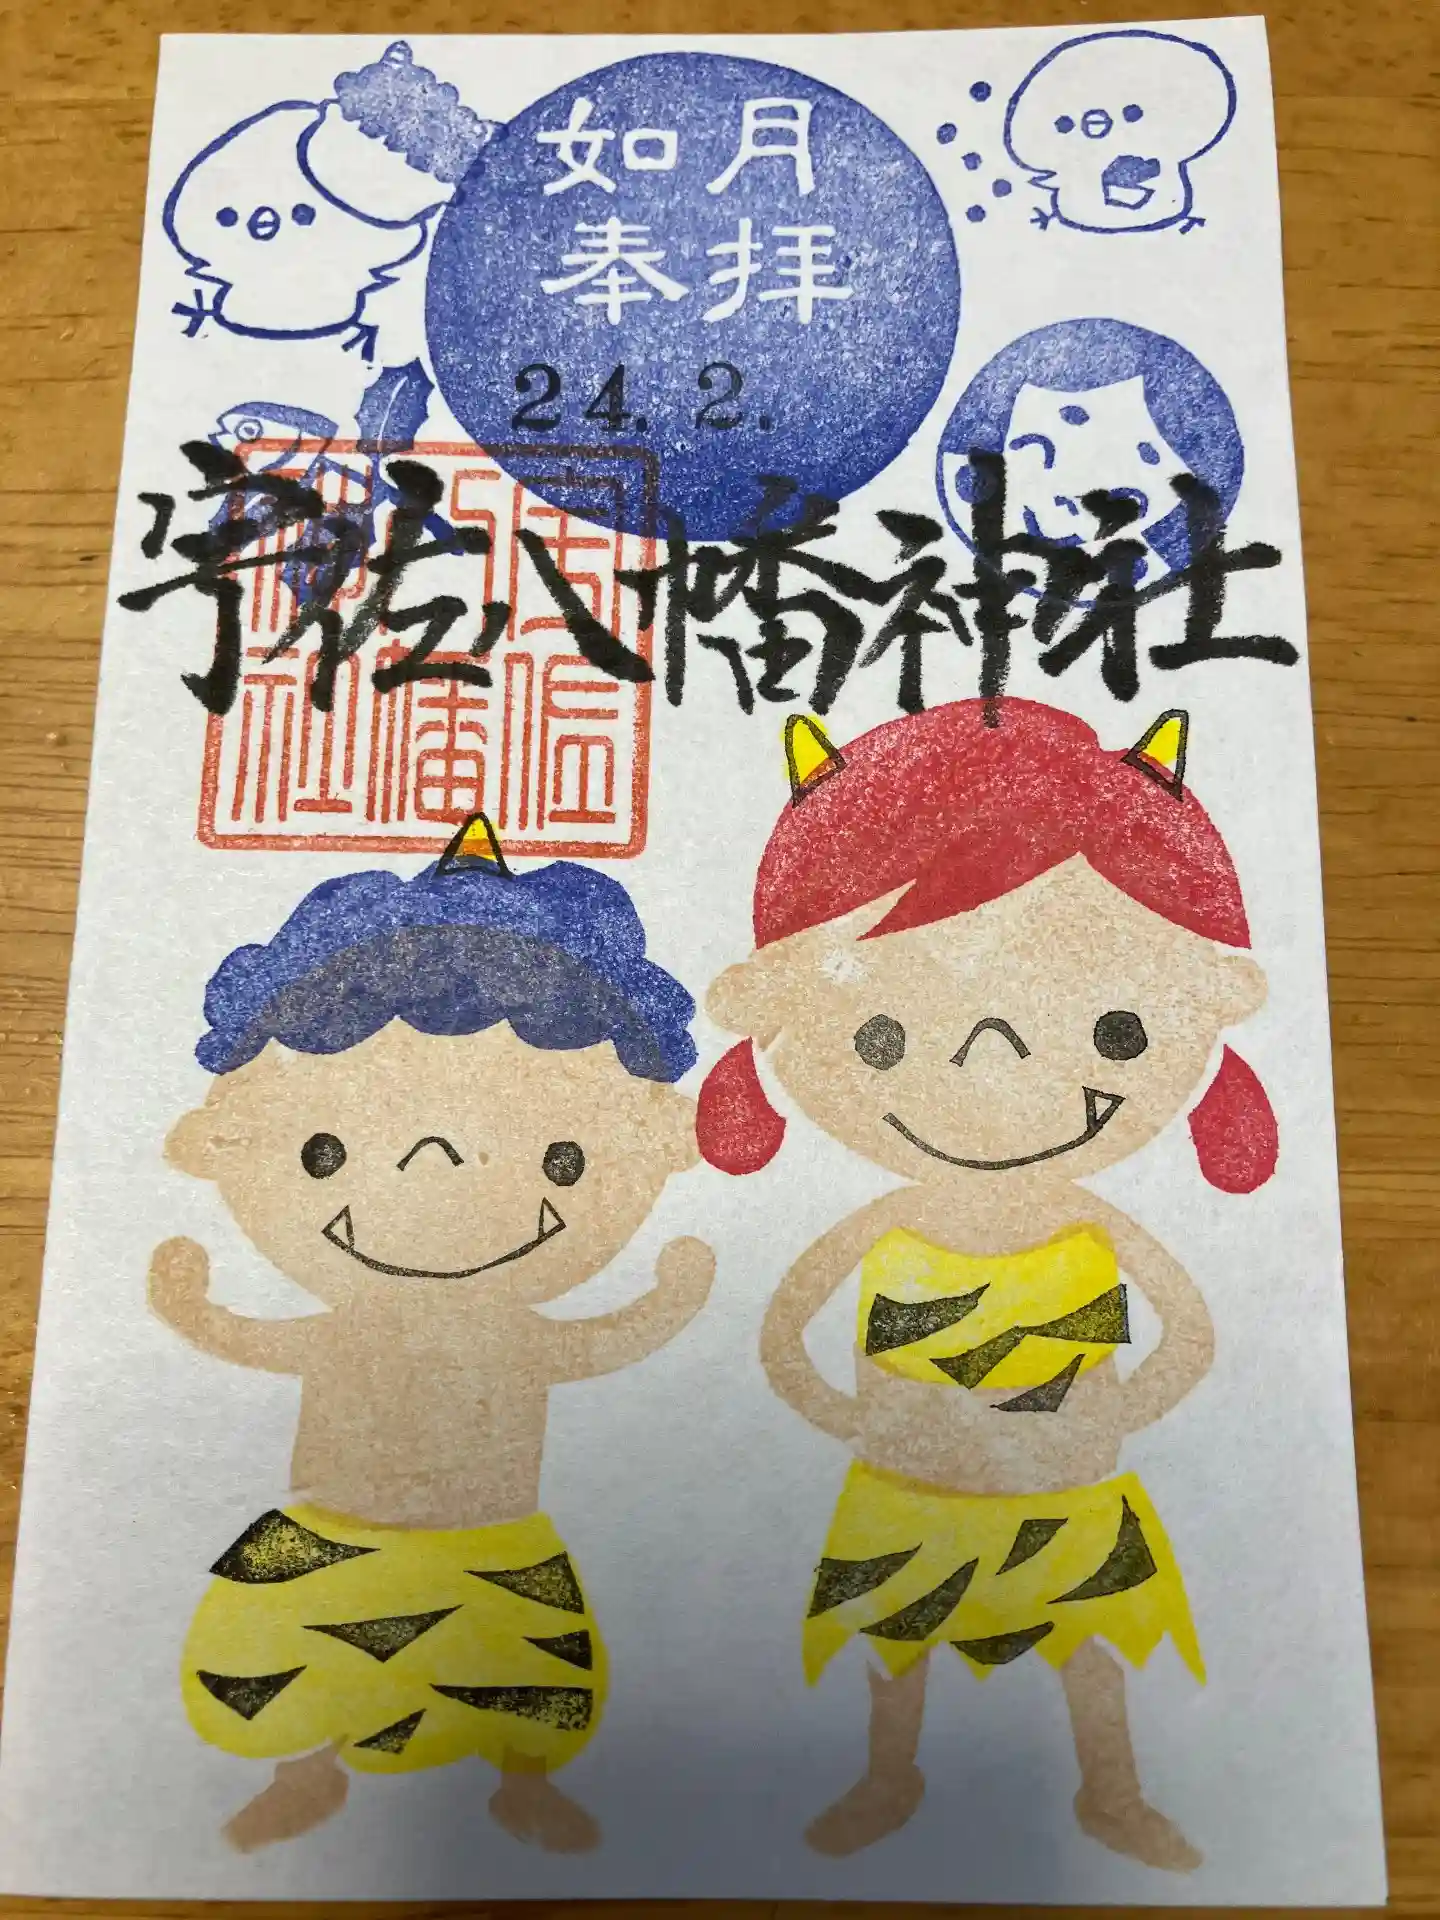 如月
奉拝
24.2.
宇佐八幡神社
宇佐
八幡
神社